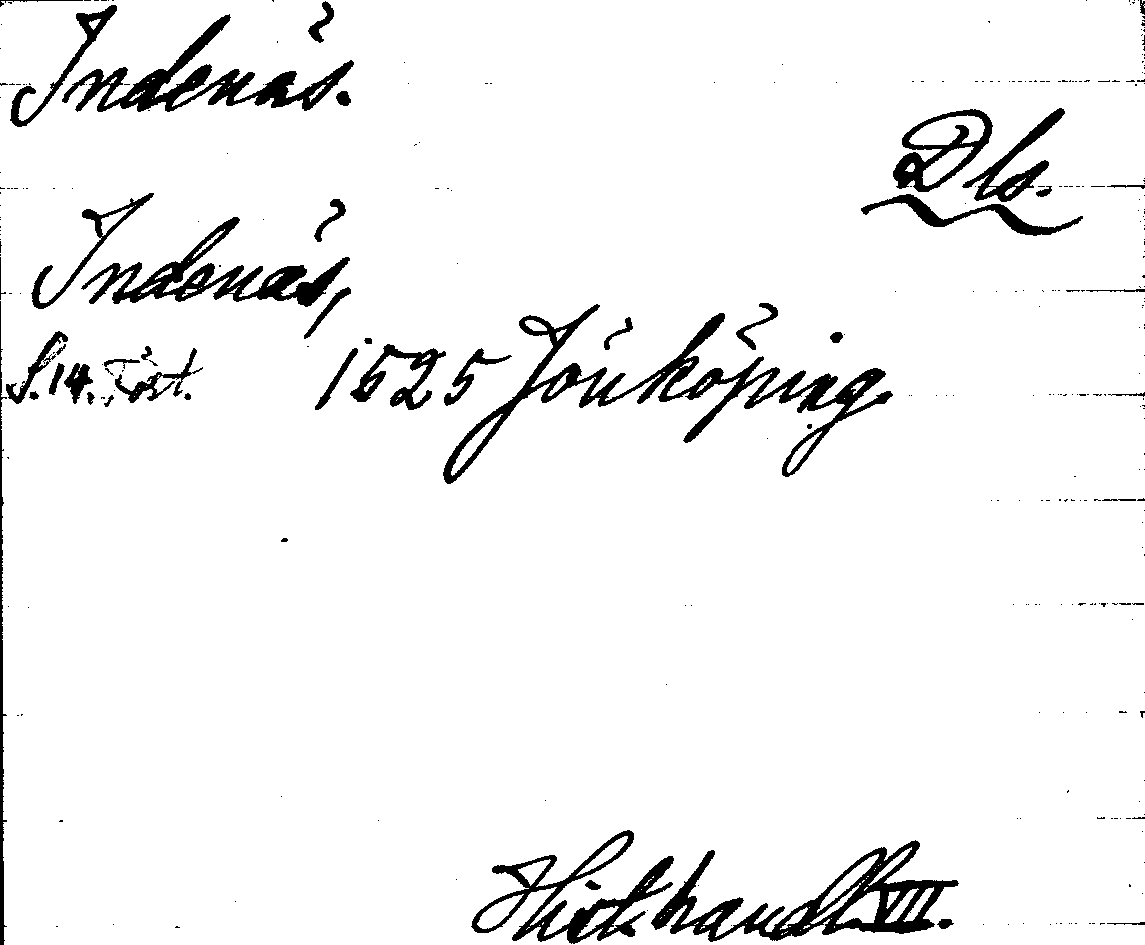 Indenäs.
Dls.
Indenäs,
S. 14. Fört. 1525 Jönköping.
Hist. handl. VII.